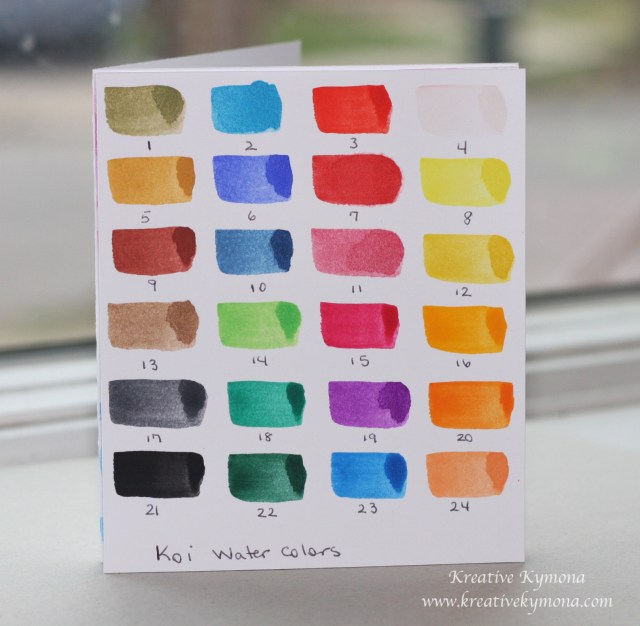 1 2 3 4
5 6 7 8
9 10 11 12
13 14 15 16
17 18 19 20
21 22 23 24
Koi Water Colors
Kreative Kymona
www.kreativekymona.com